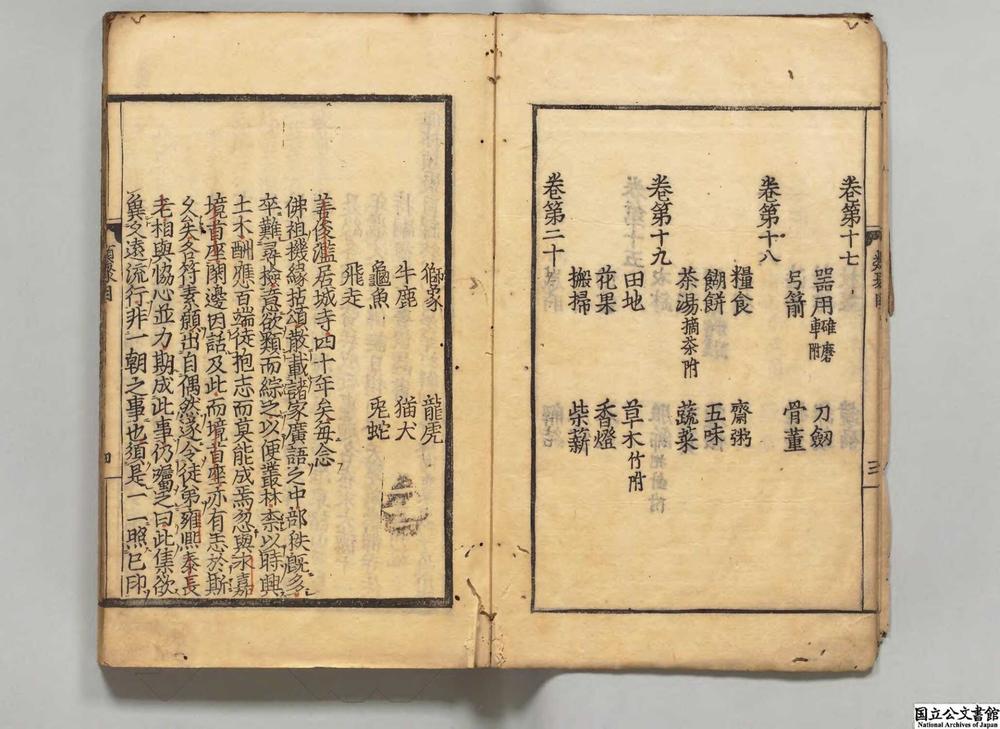 卷第十七
器用碓磨車附 刀劒
弓箭 骨董
卷第十八
糧食 齋粥
餬餅 五味
茶湯摘茶附 蔬菜
卷第十九
田地 草木竹附
花果 香燈
搬掃 柴薪
卷第二十
類聚目
三
獅象 龍虎
牛鹿 猫犬
龜魚 兎蛇
飛走
善俊濫居城寺四十年矣每念
佛祖機緣拈頌散載諸家廣語之中部秩旣多
卒難尋撿意欲類而綜之以便叢林柰以時興
土木酬應百端徒抱志而莫能成焉忽與永嘉
境首座閑邊因話及此而境首座亦有志於斯
久矣各符素願出自偶然遂令徒弟雍熙泰長
老相與恊心並力期成此事仍囑之曰此集欲
異久遠流行非一朝之事也須是一一照已印
類聚目
四
国立公文書館
National Archives of Japan